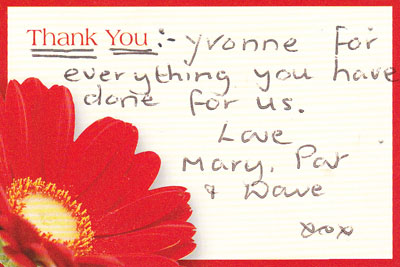 Thank You :- Yvonne For
everything you have
done for us.
Love
Mary, Pat
& Dave
xoxo